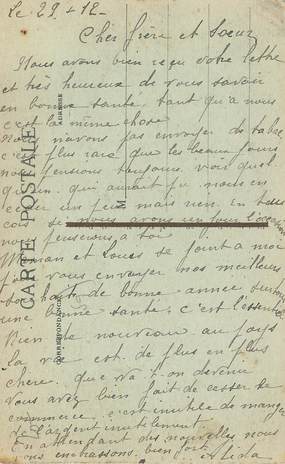 Le 29-12-
Cher frère et Soeur
Nous avons bien reçu votre lettre
et très heureux de vous savoir
en bonne santé, tant qu'a nous
c'est la même chose
Nous n'avons pas envoyer de tabac
c'est plus rare que les beaux jours
nous pensions toujours, voir quel
qu'un qui aurait pu nous en
céder un peu mais rien. En tous
cas si nous avons un jour l'occasion
nous penserons a toi.
Maman et Louis se joint a moi
pour vous envoyer nos meilleurs
souhaits de bonne année surtout
une bonne santé, c'est l'essentiel
Rien de nouveau au pays
la vie est de plus en plus
chere, que va t'on devenir
Vous avez bien fait de cesser le
commerce, c'est inutile de manger
de l'argent inutilement.
En attendant des nouvelles nous
vous embrassons bien fort
Alida
CARTE POSTALE
CORRESPONDANCE
ADRESSE
M